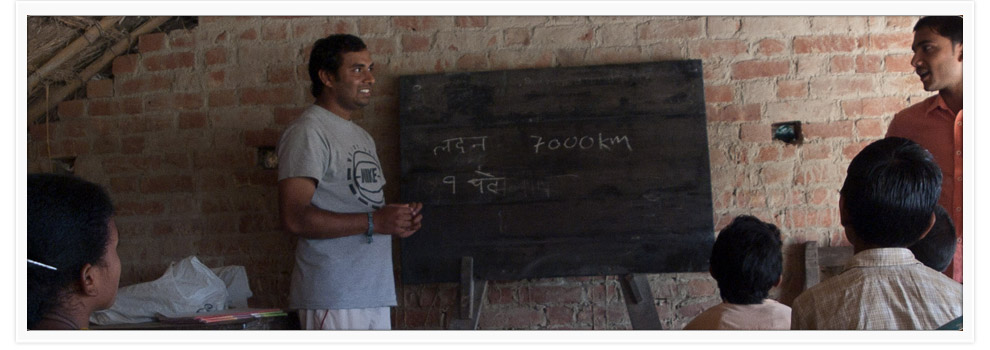 लदन 7000km
९ घंटे
NIKE